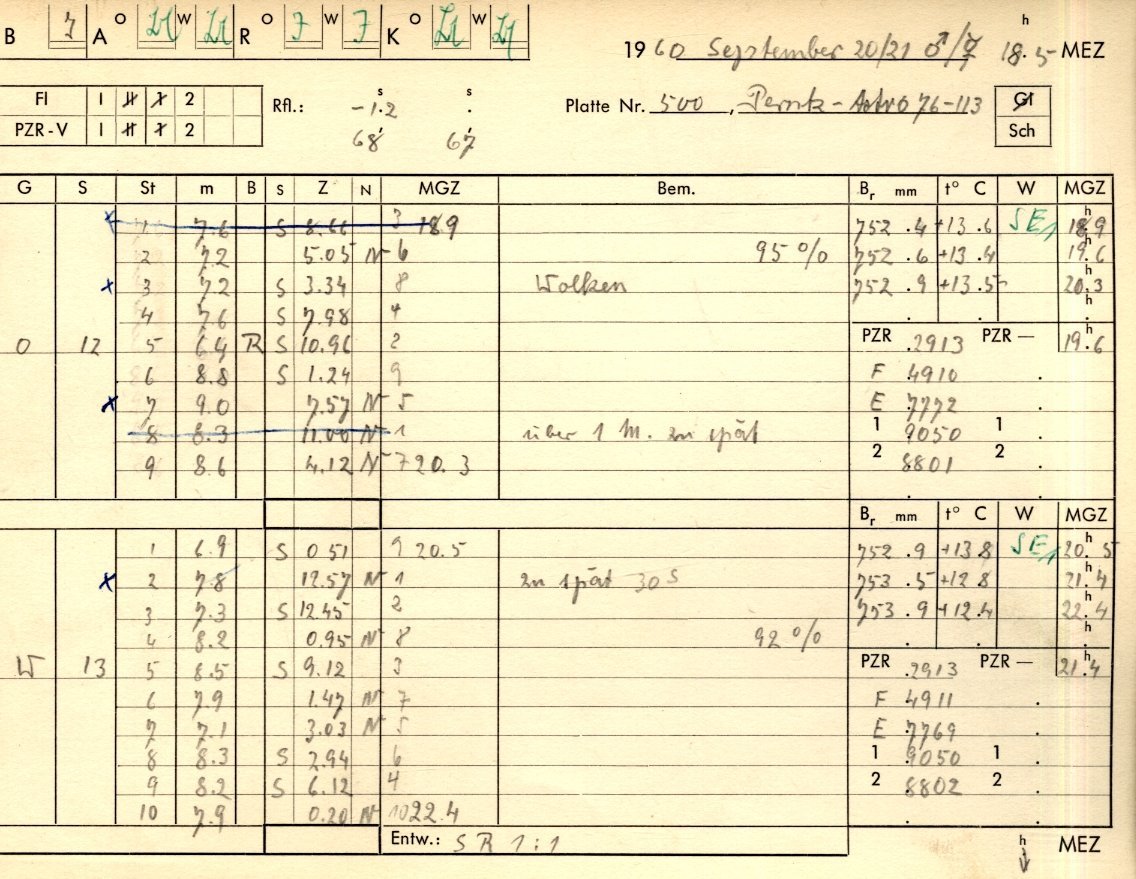 B 7 A O W R O 7 W 7 K O W
1960 September 20/21 ♂/☿ 18h.5 MEZ
Fl 1 2 Rfl.: -1s.2 s. Platte Nr. 500, Perutz-Astro 76-113 Gl
PZR-V 1 2 68 67 Sch
G S St m B S Z N MGZ Bem. Br mm t° C W MGZ
1 7.6 S 8.66 3 18.9 752.4 +13.6 SE1 18h.9
2 7.2 5.05 N 6 95% 752.6 +13.4 19h.6
x 3 7.2 S 3.34 8 Wolken 752.9 +13.5 20h.3
4 7.6 S 7.98 4
O 12 5 6.4 R S 10.96 2 PZR .2913 PZR — 19h.6
6 8.8 S 1.24 9 F 4910
x 7 9.0 7.57 N 5 E 7772
8 8.3 11.00 N 1 über 1 M. zu spät 1 9050 1
9 8.6 4.12 N 7 20.3 2 8801 2
Br mm t° C W MGZ
1 6.9 S 0 51 9 20.5 752.9 +13 8 SE1 20h.5
x 2 7.8 12.57 N 1 zu spät 30s 753.5 +12 8 21h.4
3 7.3 S 12.45 2 753.9 +12.4 22h.4
4 8.2 0.95 N 8 92%
W 13 5 8.5 S 9.12 3 PZR .2913 PZR — 21h.4
6 7.9 1.47 N 7 F 4911
7 7.1 3.03 N 5 E 7769
8 8.3 S 2.94 6 1 9050 1
9 8.2 S 6.12 4 2 8802 2
10 7.9 0.20 N 10 22.4
Entw.: S R 1:1 h MEZ